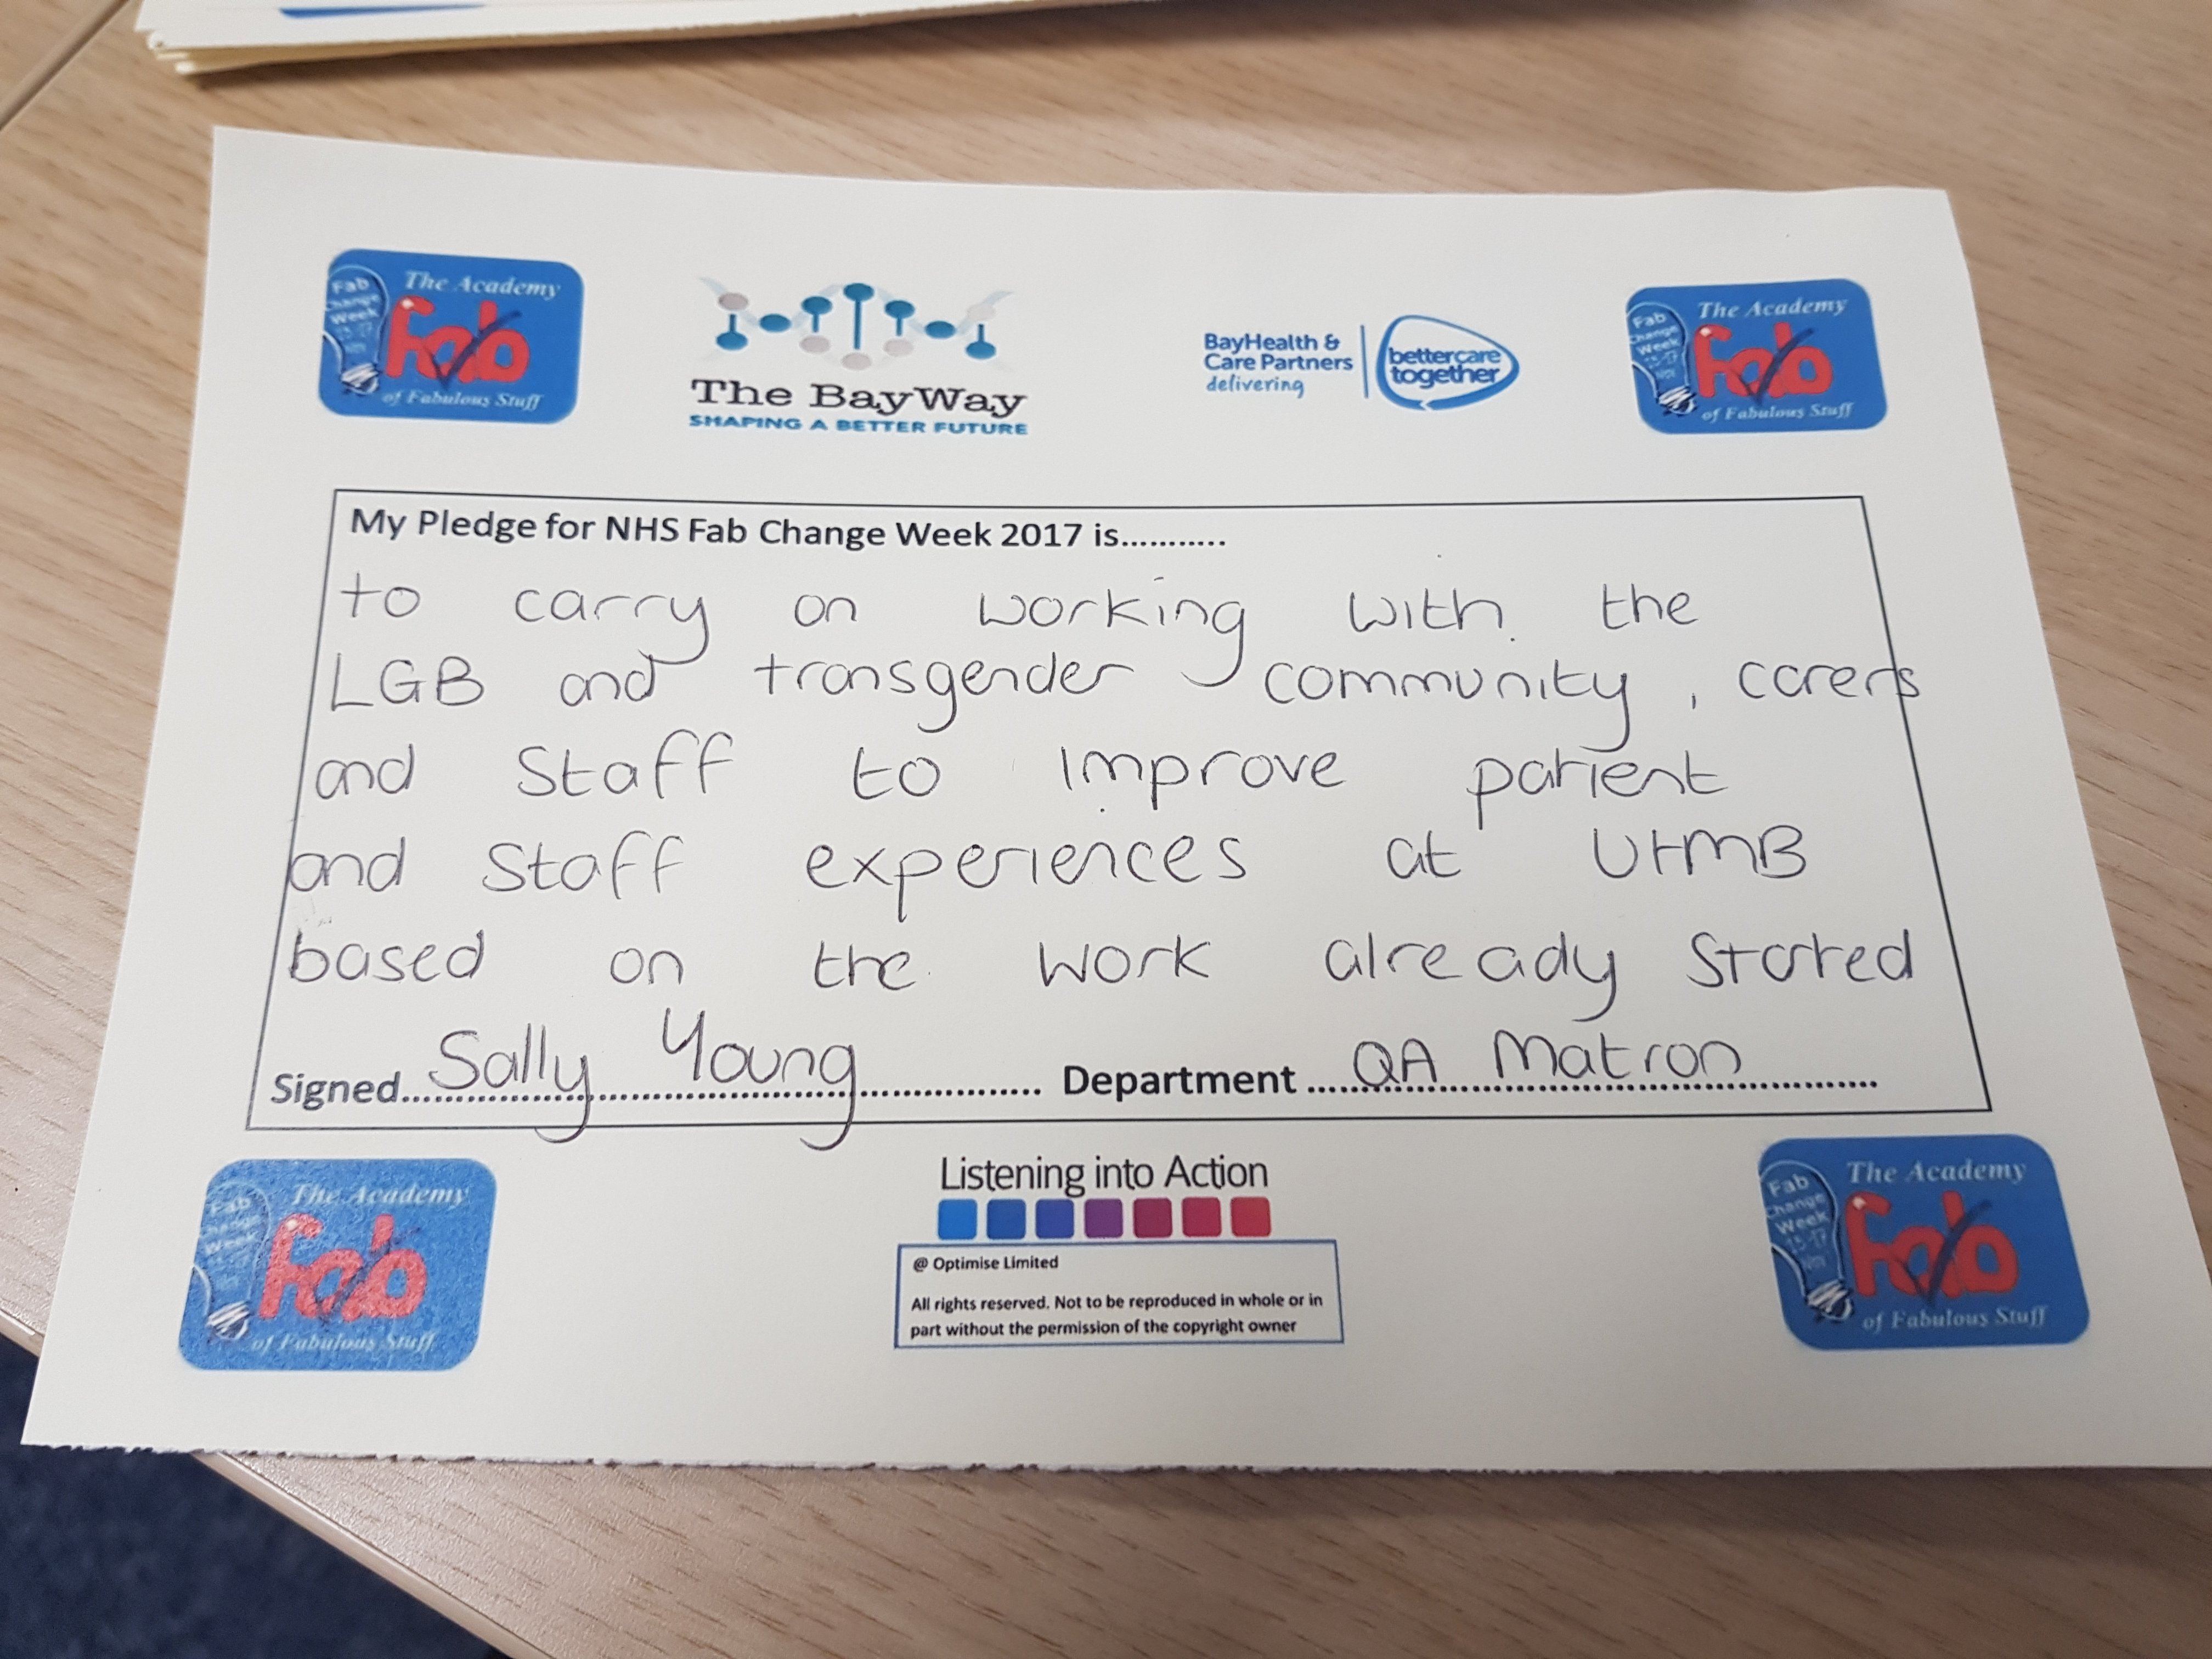 The Academy
Fab
Change
Week
13-17
Nov
fab
of Fabulous Stuff
The BayWay
SHAPING A BETTER FUTURE
BayHealth &
Care Partners
delivering
bettercare
together
The Academy
Fab
Change
Week
13-17
Nov
fab
of Fabulous Stuff
My Pledge for NHS Fab Change Week 2017 is...........
to carry on working with the
LGB and transgender community, carers
and staff to improve patient
and staff experiences at UHMB
based on the work already started
Signed Sally Young Department QA Matron
The Academy
Fab
Change
Week
13-17
Nov
fab
of Fabulous Stuff
Listening into Action
@ Optimise Limited
All rights reserved. Not to be reproduced in whole or in
part without the permission of the copyright owner
The Academy
Fab
Change
Week
13-17
Nov
fab
of Fabulous Stuff